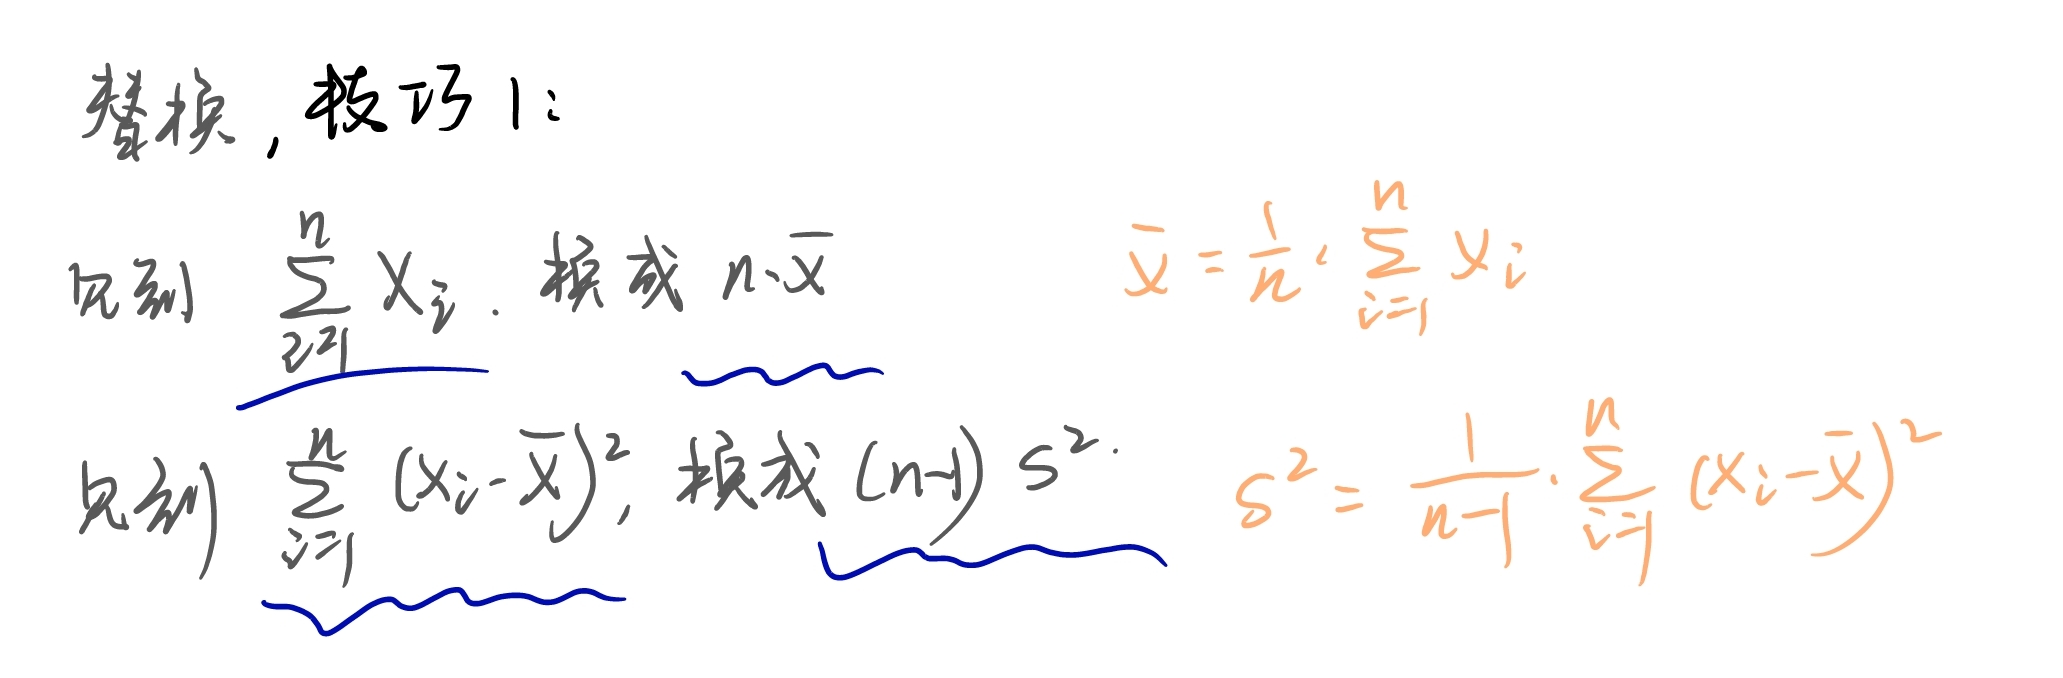 替换,技巧1:
见到 $\sum_{i=1}^{n} X_i$. 换成 $n \cdot \bar{X}$ $\bar{X} = \frac{1}{n} \cdot \sum_{i=1}^{n} X_i$
见到 $\sum_{i=1}^{n} (X_i - \bar{X})^2$, 换成 $(n-1) S^2$. $S^2 = \frac{1}{n-1} \cdot \sum_{i=1}^{n} (X_i - \bar{X})^2$